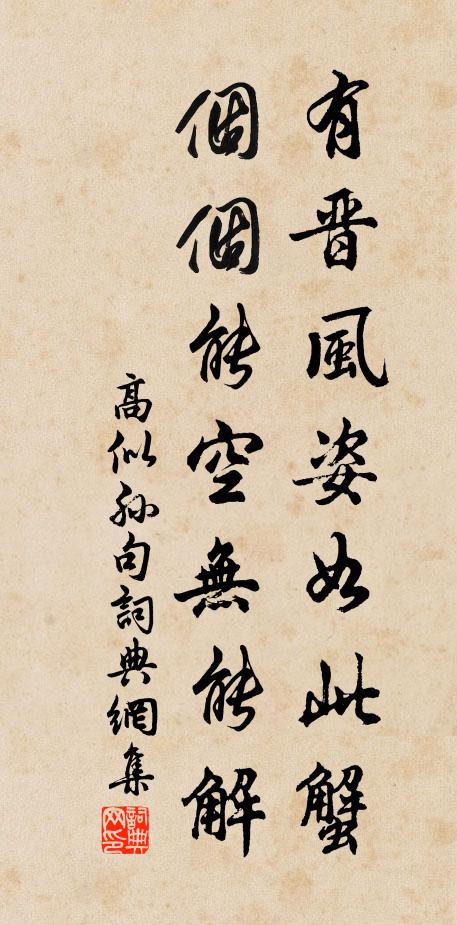 有晋風姿如此蟹
個個能空無能解
高似孙句詞典網集
詞典网印